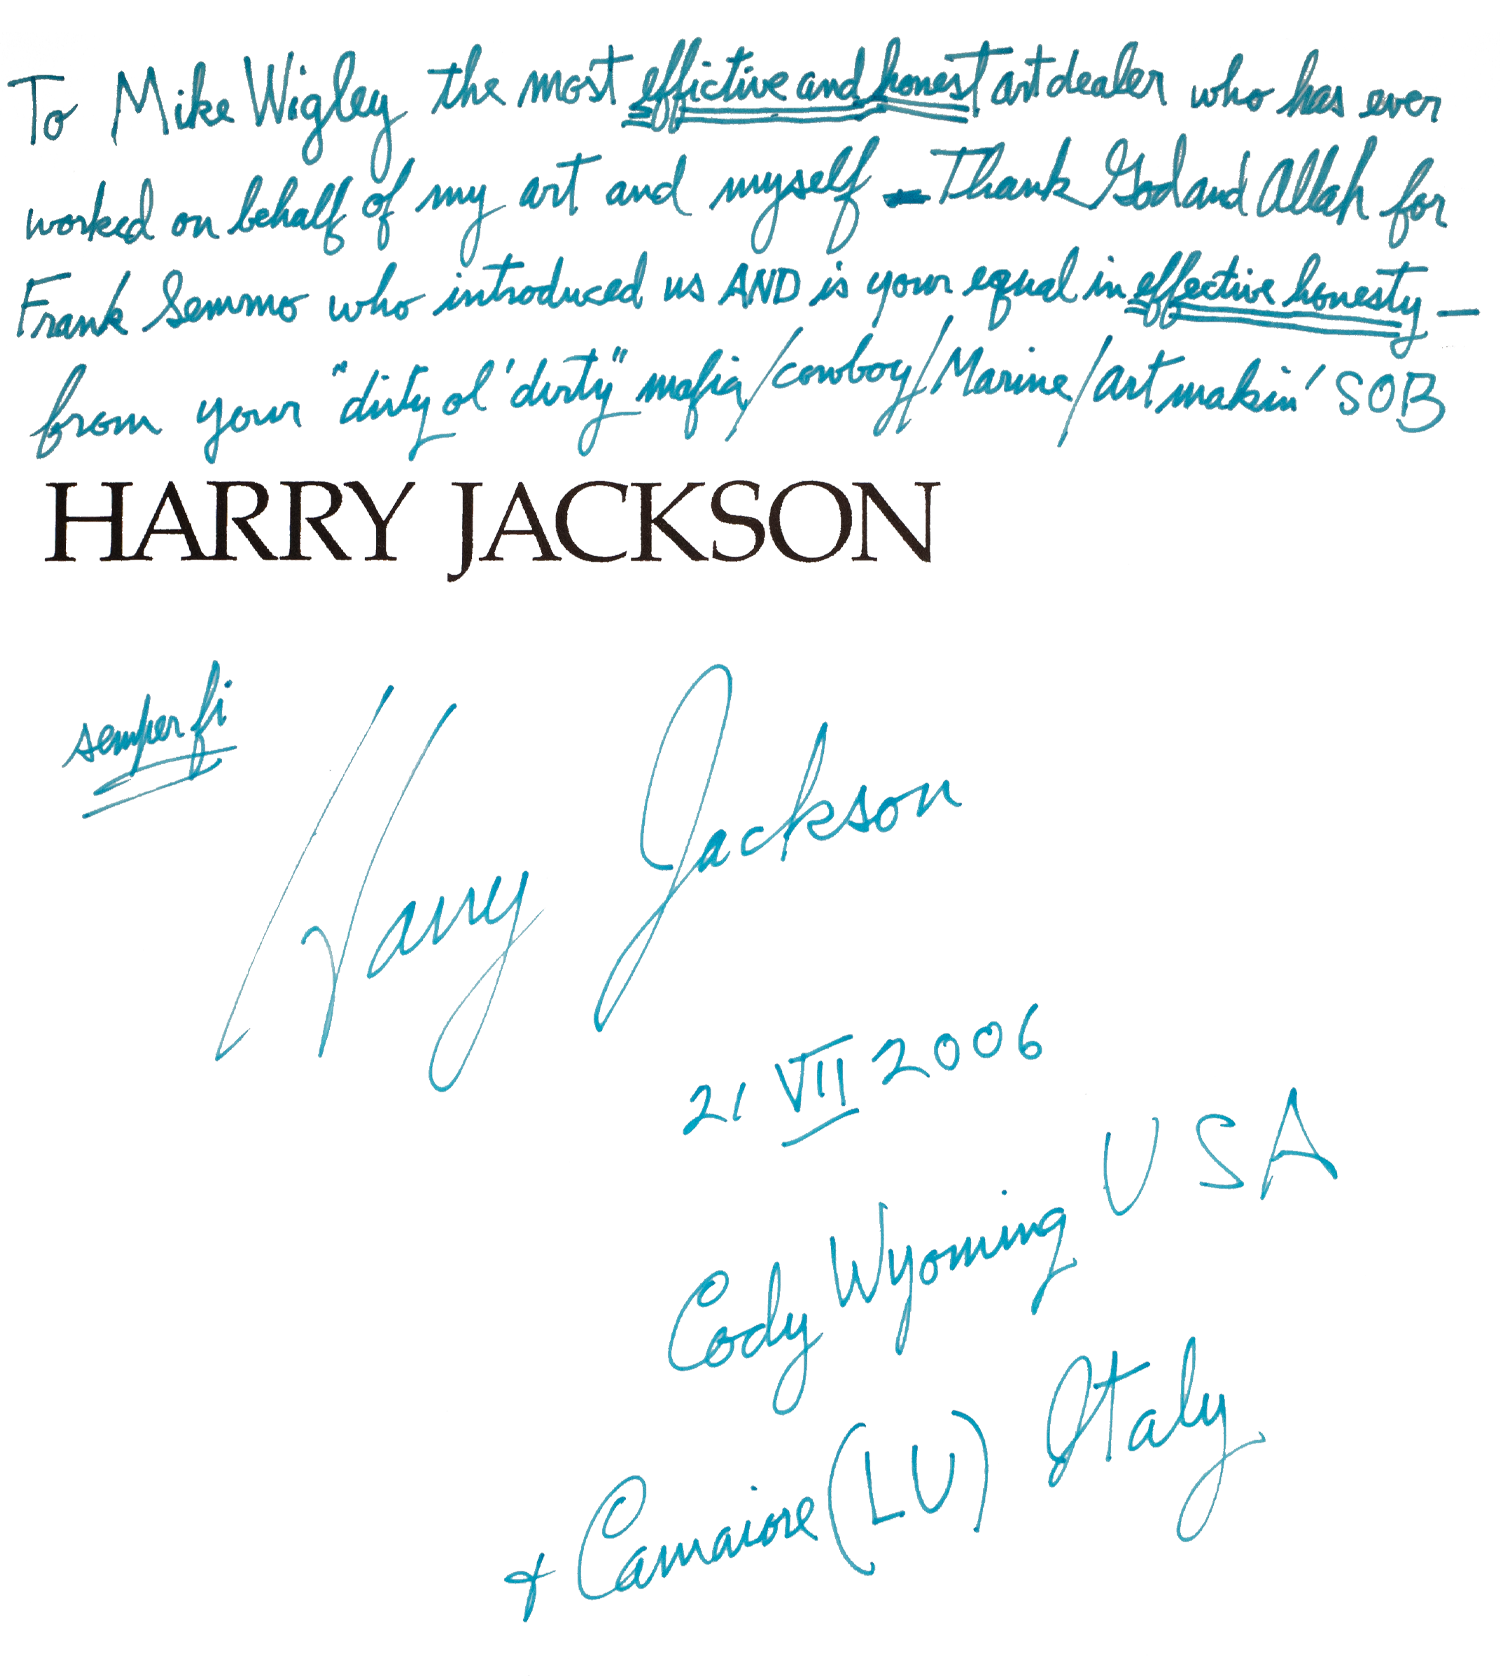 To Mike Wigley the most effictive and honest art dealer who has ever
worked on behalf of my art and myself – Thank God and Allah for
Frank Semmo who introduced us AND is your equal in effective honesty –
from your "dirty ol' dirty" mafia/cowboy/Marine/art makin' SOB
HARRY JACKSON
semper fi
Harry Jackson
21 VII 2006
Cody Wyoming USA
+ Camaiore (LU) Italy